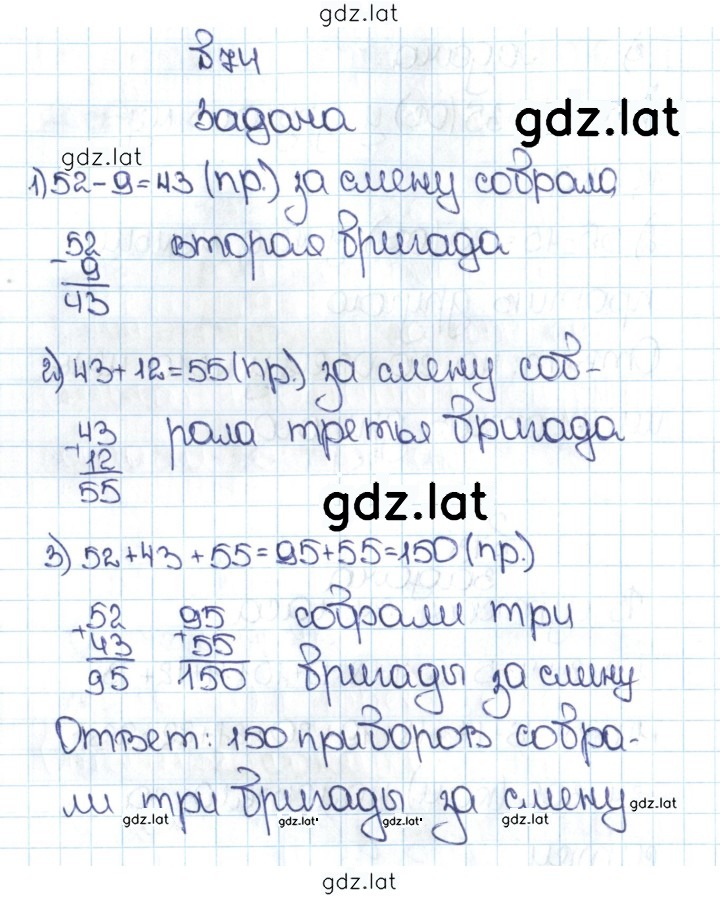 gdz.lat
В74
Задача
gdz.lat
gdz.lat
1) 52-9=43 (пр.) за смену собрала
52 вторая бригада
- 9
43
2) 43+12=55 (пр.) за смену соб-
43 рала третья бригада
+ 12
55
gdz.lat
3) 52+43+55=95+55=150 (пр.)
52 95 собрали три
+ 43 + 55
95 150 бригады за смену
Ответ: 150 приборов собра-
ли три бригады за смену
gdz.lat
gdz.lat gdz.lat gdz.lat gdz.lat
gdz.lat